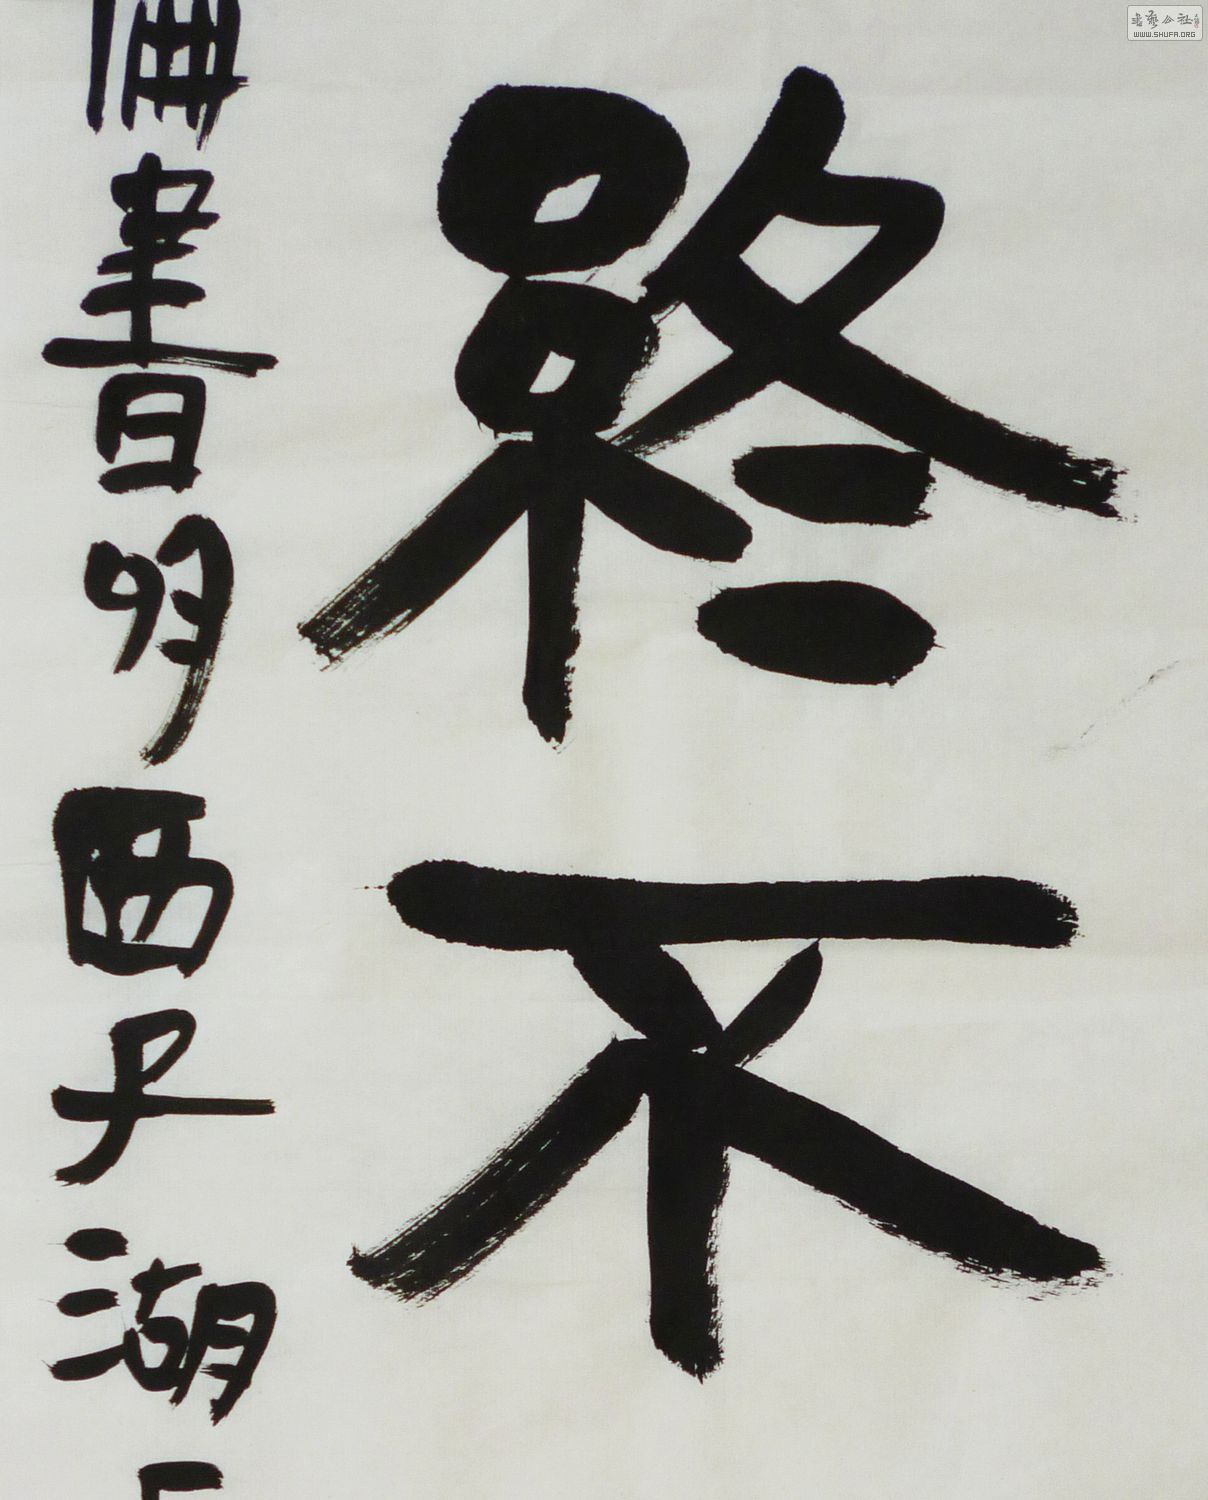 終不
書於西子湖
書藝公社
WWW.SHUFA.ORG